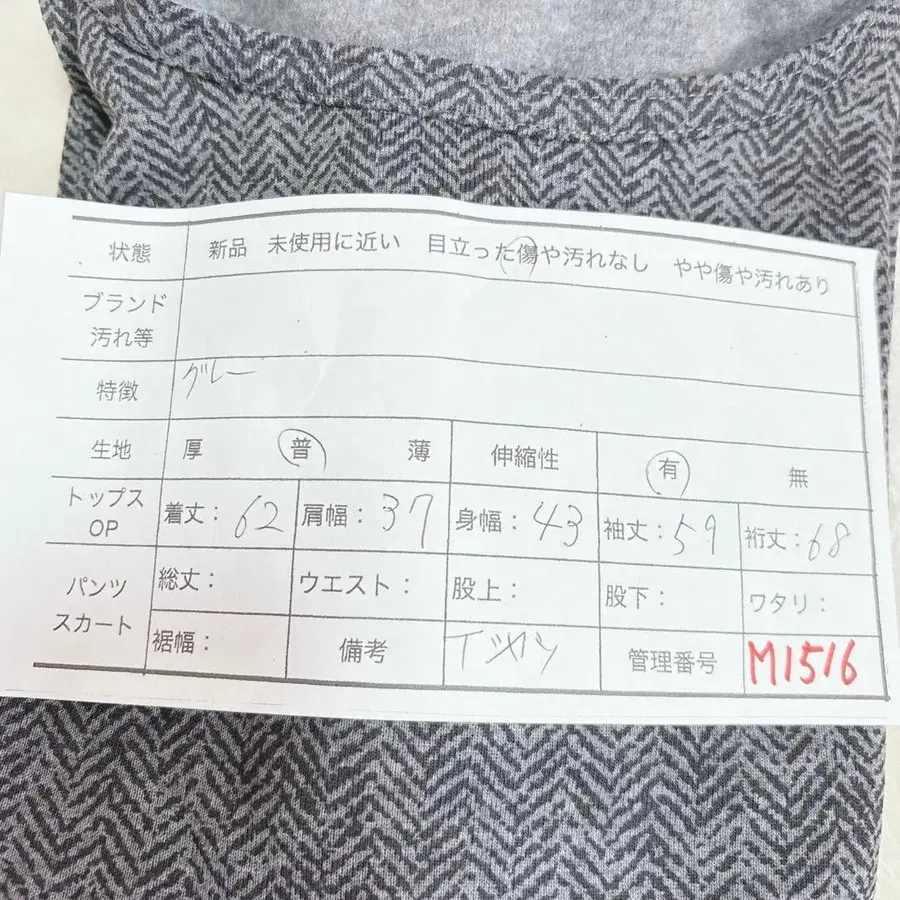 状態 新品 未使用に近い 目立った傷や汚れなし やや傷や汚れあり
ブランド
汚れ等
特徴 グレー
生地 厚 普 薄 伸縮性 有 無
トップス
OP 着丈：62 肩幅：37 身幅：43 袖丈：59 裄丈：68
パンツ
スカート 総丈： ウエスト： 股上： 股下： ワタリ：
裾幅： 備考 管理番号 M1516